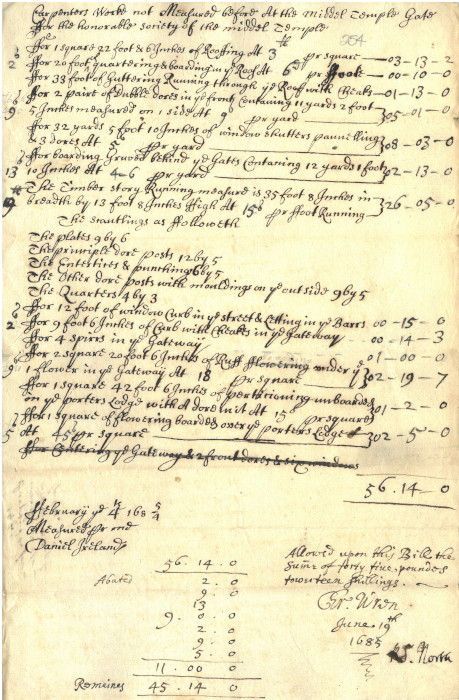 Carpenters Worke not Measured before At the Middel Temple Gate
For the honorable society of the middel Temple
254
For 1 square 22 foot & 6 Inches of Roofing At 3 pr square 03-13-2
For 20 foot quartering & boarding in ye Roof At 6d pr foot 00-10-0
For 33 foot of Guttering Running through ye Roof with Cheaks 01-13-0
For 2 paire of Dubble dores in ye front Contaning 11 yards 2 foot
5 Inches measured on 1 side At 9s pr yard 05-01-0
For 32 yards 5 foot 10 Inches of window shutters pannelling
& 3 dores At 5s pr yard 08-03-0
For boarding Gruved behind ye Gates Contaning 12 yards 1 foot
10 Inches At 4-6 pr yard 02-13-0
The Timber story Runing measure is 35 foot 8 Inches in
breadth by 13 foot 8 Inches High At 15s pr ffoot Running 26-05-0
The scantlings as ffolloweth
The plates 9 by 6
The principle dore posts 12 by 5
The Entertices & punchins 6 by 5
The Other dore posts with mouldings on ye outside 9 by 5
The Quarters 4 by 3
For 12 foot of window Curb in ye street & Letting in ye Barrs 00-15-0
For 9 foot 6 Inches of Curb with Cheaks in ye Gateway 00-14-3
For 4 spirrs in ye Gateway 01-00-0
For 2 square 20 foot 6 Inches of Ruff fflowering under ye
flower in ye Gateway At 18 pr square 02-19-7
For 1 square 42 foot 6 Inches of pertitioning unboarded
on ye porters Lodge with A dore in it At 15s pr square 01-2-0
For 1 square of flowering boarded over ye porters Lodge
At 45s pr square 02-5-0
For Centering ye Gateway & 2 front dores & six windows
56.14-0
February ye 4th 168 5/4
Measured pr me
Daniel Ireland
56.14.0
Abated 2.0
9.0
13
9.0.0
2.0
9.0
5.0
11.00.0
Remaines 45.14.0
Allowed upon this Bill the
summ of forty five poundes
fourteen shillings.
Chr. Wren
June 19th
1685
North